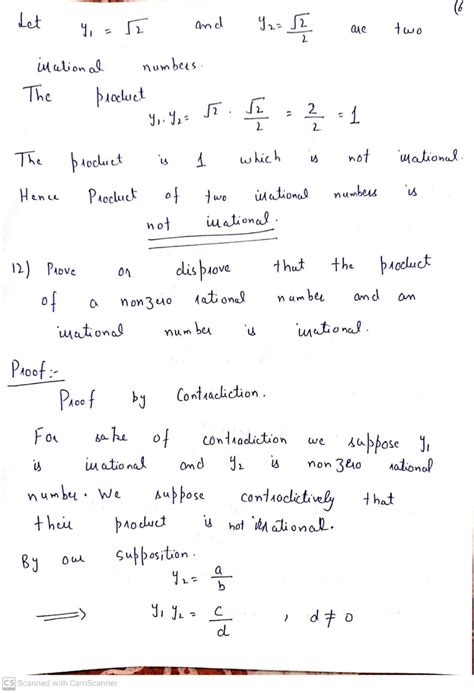 (6
Let y₁ = √2 and y₂ = √2/2 are two
irrational numbers.
The product
y₁. y₂ = √2 . √2/2 = 2/2 = 1
The product is 1 which is not irrational.
Hence Product of two irrational numbers is
not irrational.
12) Prove or disprove that the product
of a nonzero rational number and an
irrational number is irrational.
Proof:-
Proof by Contradiction.
For sake of contradiction we suppose y₁
is irrational and y₂ is non zero rational
number. We suppose contradictively that
their product is not irrational.
By our supposition.
y₂ = a/b
⟹ y₁ y₂ = c/d , d ≠ 0
CS Scanned with CamScanner